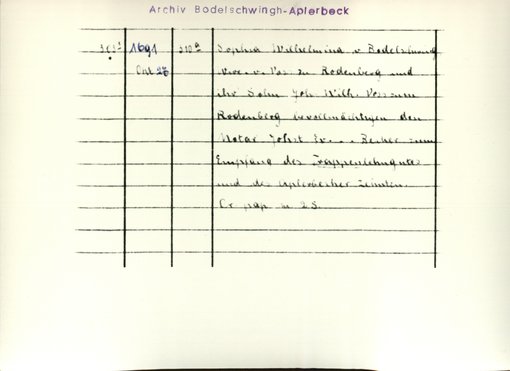 Archiv Bodelschwingh-Aplerbeck
1691 Sophia Wilhelmina v Bodelschwing
Okt 26 v. Vos zu Rodenberg und
ihr Sohn Joh. Wilh. Vos zum
Rodenberg bevollmächtigen den
Notar Jobst Becker zum
Empfang des Trappenlehngutes
und des Aplerbecker Zehnten.
Or. pap. m 2 S.